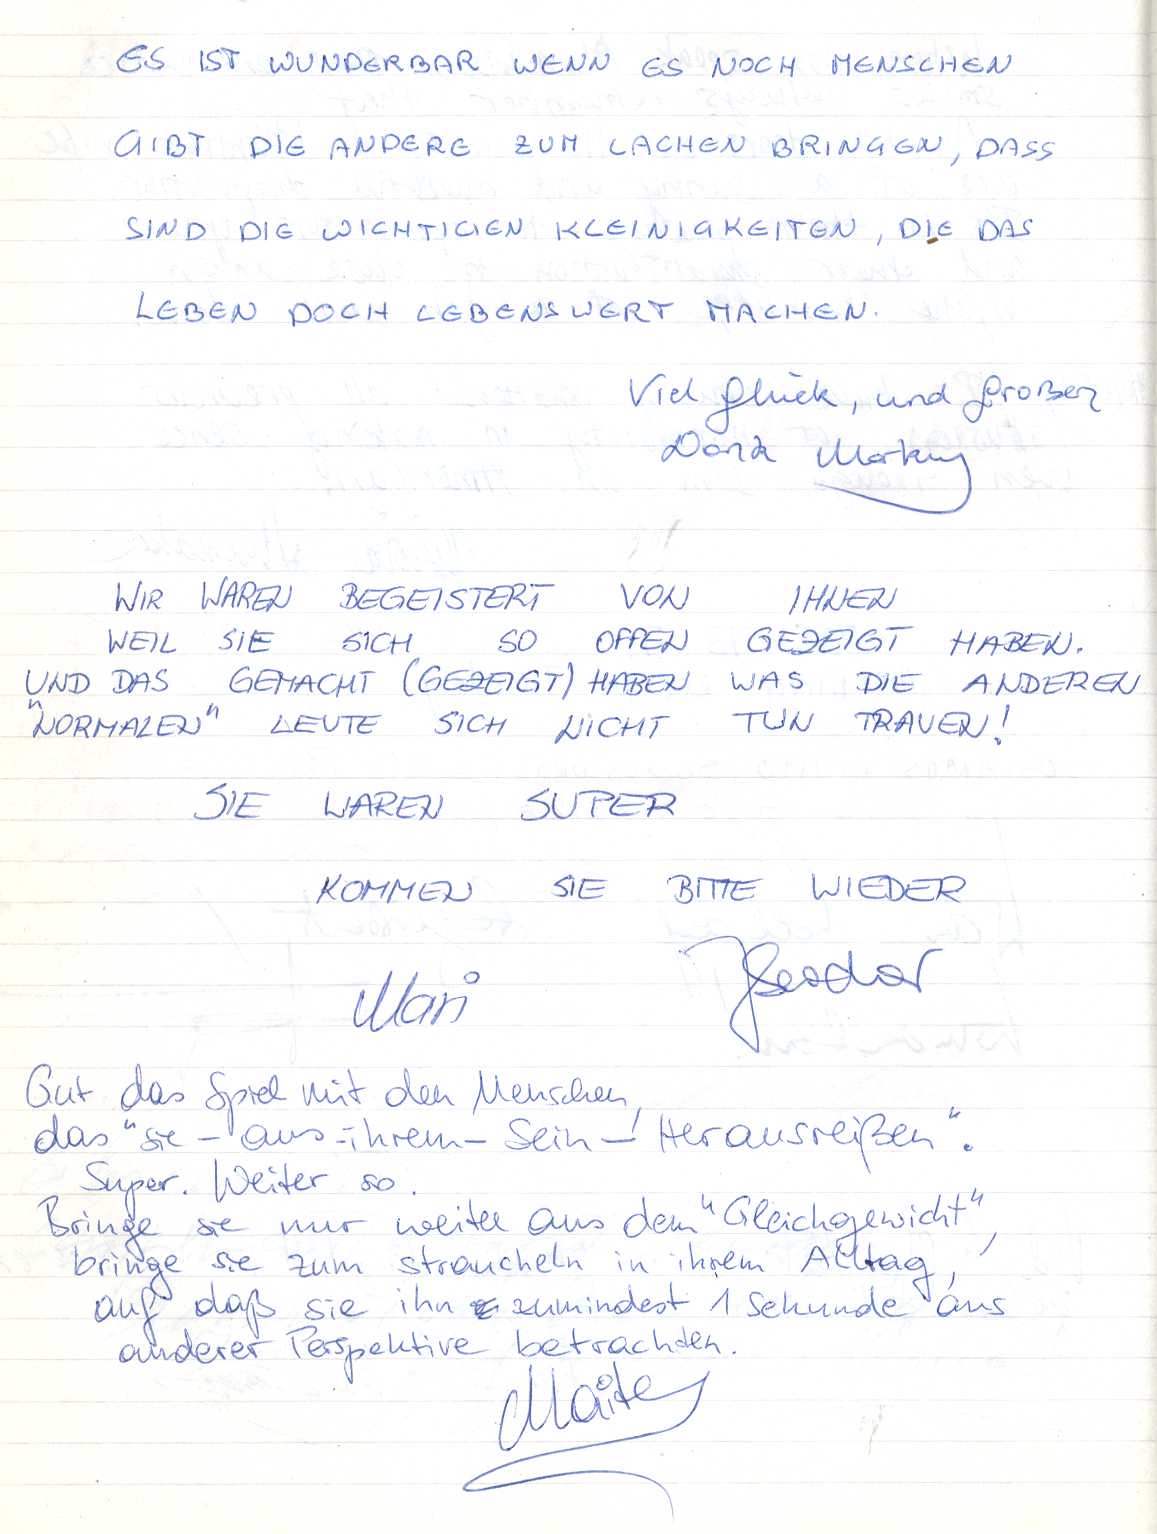 ES IST WUNDERBAR WENN ES NOCH MENSCHEN
GIBT DIE ANDERE ZUM LACHEN BRINGEN, DASS
SIND DIE WICHTIGEN KLEINIGKEITEN, DIE DAS
LEBEN DOCH LEBENSWERT MACHEN.
Viel Glück, und Großen
Dank Markus
WIR WAREN BEGEISTERT VON IHNEN
WEIL SIE SICH SO OFFEN GEZEIGT HABEN.
UND DAS GEMACHT (GEZEIGT) HABEN WAS DIE ANDEREN
"NORMALEN" LEUTE SICH NICHT TUN TRAUEN!
SIE WAREN SUPER
KOMMEN SIE BITTE WIEDER
Mari
Gut das Spiel mit den Menschen,
das "sie - aus - ihrem - Sein - Herausreißen".
Super. Weiter so.
Bringe sie nur weiter aus dem "Gleichgewicht",
bringe sie zum straucheln in ihrem Alltag,
auf daß sie ihn zumindest 1 Sekunde aus
anderer Perspektive betrachten.